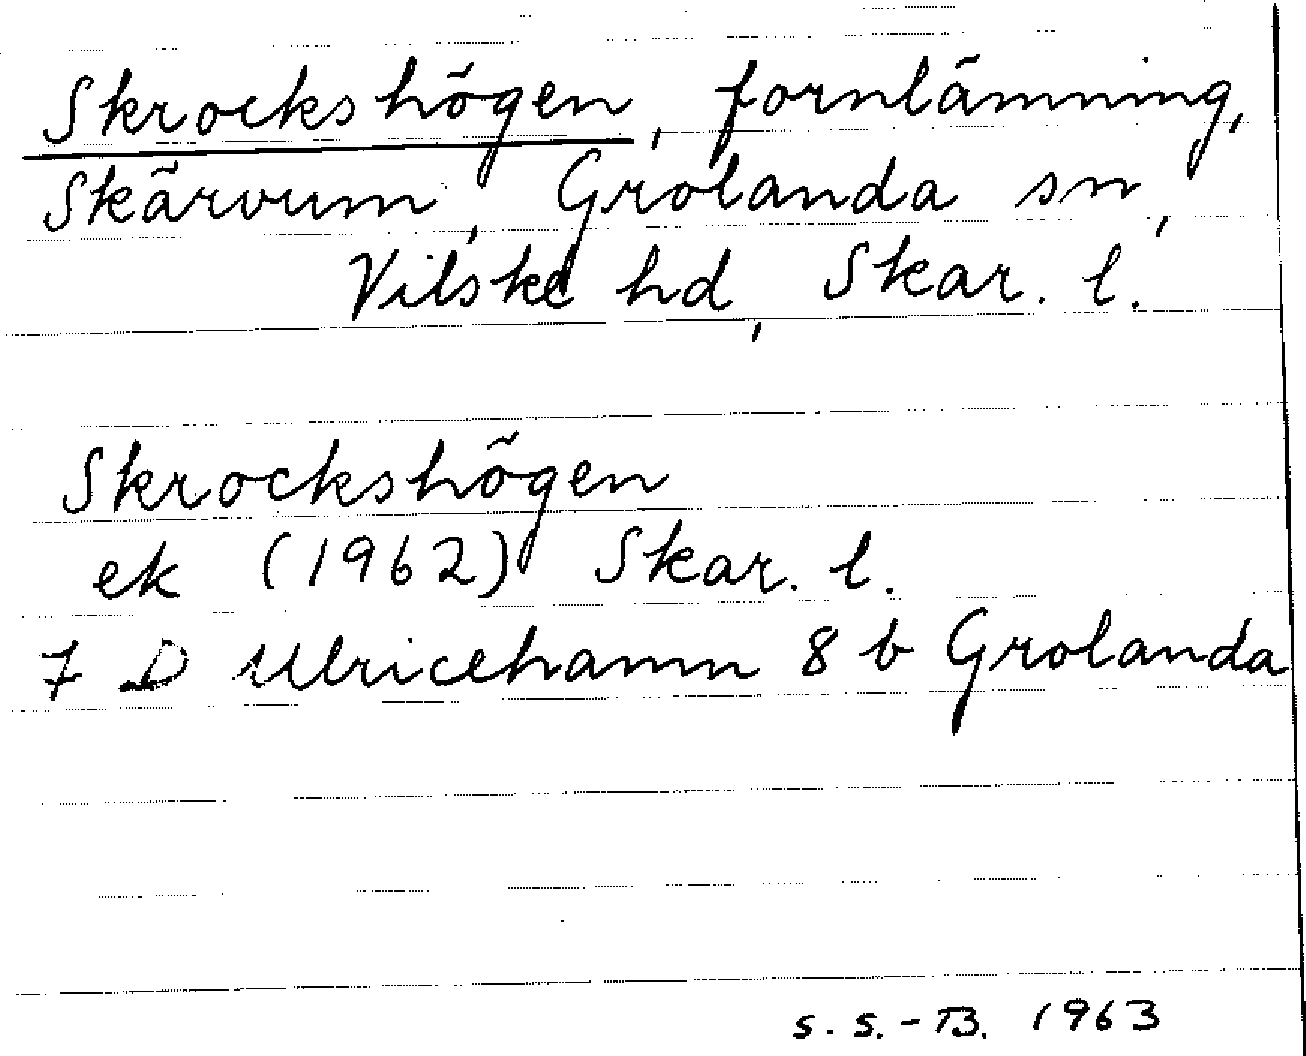 Skrockshögen, fornlämning,
Skärvum, Grolanda sn,
Vilske hd, Skar. l.
Skrockshögen
ek (1962) Skar. l.
7 D Ulricehamn 8 b Grolanda
S. S.-B. 1963